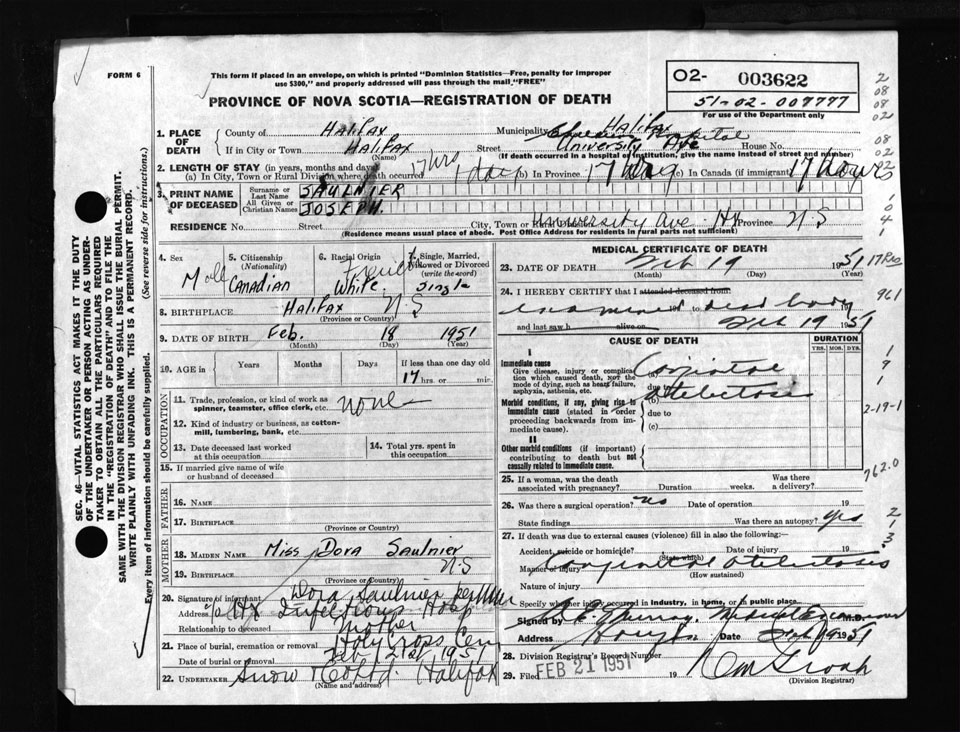 FORM 6
This form if placed in an envelope, on which is printed "Dominion Statistics—Free, penalty for improper
use $300," and properly addressed will pass through the mail "FREE"
O2- 003622
51-02-007777
For use of the Department only
PROVINCE OF NOVA SCOTIA—REGISTRATION OF DEATH
1. PLACE OF DEATH
County of Halifax Municipality Halifax
If in City or Town Halifax (Name) Street Children's Hospital University Ave House No.
(If death occurred in a hospital or institution, give the name instead of street and number)
2. LENGTH OF STAY (in years, months and days)
(a) In City, Town or Rural Division where death occurred 17 hrs 1 day (b) In Province 17 Day (c) In Canada (if immigrant) 17 hours
3. PRINT NAME OF DECEASED
Surname or Last Name SAULNIER
All Given or Christian Names JOSEPH.
RESIDENCE No. Street City, Town or Rural University Ave. Hx Province N.S
(Residence means usual place of abode. Post Office Address for residents in rural parts not sufficient)
4. Sex Male
5. Citizenship (Nationality) Canadian
6. Racial Origin French White
7. Single, Married, Widowed or Divorced (write the word) Single
8. BIRTHPLACE Halifax N.S
(Province or Country)
9. DATE OF BIRTH Feb. 18 1951
(Month) (Day) (Year)
10. AGE in Years Months Days If less than one day old
17 hrs. or min.
OCCUPATION
11. Trade, profession, or kind of work as
spinner, teamster, office clerk, etc. none
12. Kind of industry or business, as cotton-
mill, lumbering, bank, etc.
13. Date deceased last worked
at this occupation
14. Total yrs. spent in
this occupation
15. If married give name of wife
or husband of deceased
FATHER
16. NAME
17. BIRTHPLACE
(Province or Country)
MOTHER
18. MAIDEN NAME Miss Dora Saulnier
19. BIRTHPLACE N.S
(Province or Country)
20. Signature of informant Dora Saulnier
Address Hx Infectious Hosp
Relationship to deceased mother
21. Place of burial, cremation or removal Holy Cross Cem
Date of burial or removal Feb 21st 1951
22. UNDERTAKER Snow & Co Ltd. Halifax
(Name and address)
MEDICAL CERTIFICATE OF DEATH
23. DATE OF DEATH Feb 19 1951
(Month) (Day) (Year)
24. I HEREBY CERTIFY that I attended deceased from
examined dead body
and last saw h alive on Feb 19 1951
CAUSE OF DEATH
DURATION
YRS. MOS. DYS.
I
Immediate cause
Give disease, injury or complica-
tion which caused death, not the
mode of dying, such as heart failure,
asphyxia, asthenia, etc.
(a) Congenital
due to atelectasis
Morbid conditions, if any, giving rise to
immediate cause (stated in order
proceeding backwards from im-
mediate cause).
(b)
due to
(c)
II
Other morbid conditions (if important)
contributing to death but not
causally related to immediate cause.
25. If a woman, was the death
associated with pregnancy? Duration weeks. Was there
a delivery?
26. Was there a surgical operation? no Date of operation 19
State findings Was there an autopsy? Yes
27. If death was due to external causes (violence) fill in also the following:—
Accident, suicide or homicide? Date of injury 19
(State which)
Manner of injury Congenital atelectasis
(How sustained)
Nature of injury
Specify where injury occurred in industry, in home, or in public place.
Signed by Medical Examiner M.D.
Address Date Feb 19 1951
28. Division Registrar's Record Number
29. Filed FEB 21 1951 19
(Division Registrar)
SEC. 46—VITAL STATISTICS ACT MAKES IT THE DUTY
OF THE UNDERTAKER OR PERSON ACTING AS UNDER-
TAKER TO OBTAIN ALL THE PARTICULARS REQUIRED
IN THE "REGISTRATION OF DEATH" AND TO FILE THE
SAME WITH THE DIVISION REGISTRAR WHO SHALL ISSUE THE BURIAL PERMIT.
WRITE PLAINLY WITH UNFADING INK. THIS IS A PERMANENT RECORD.
Every item of information should be carefully supplied. (See reverse side for instructions.)
2
08
08
02
08
02
02
1
0
4
1
17 hrs
961
1
9
1
2-19-1
762.0
2
1
3